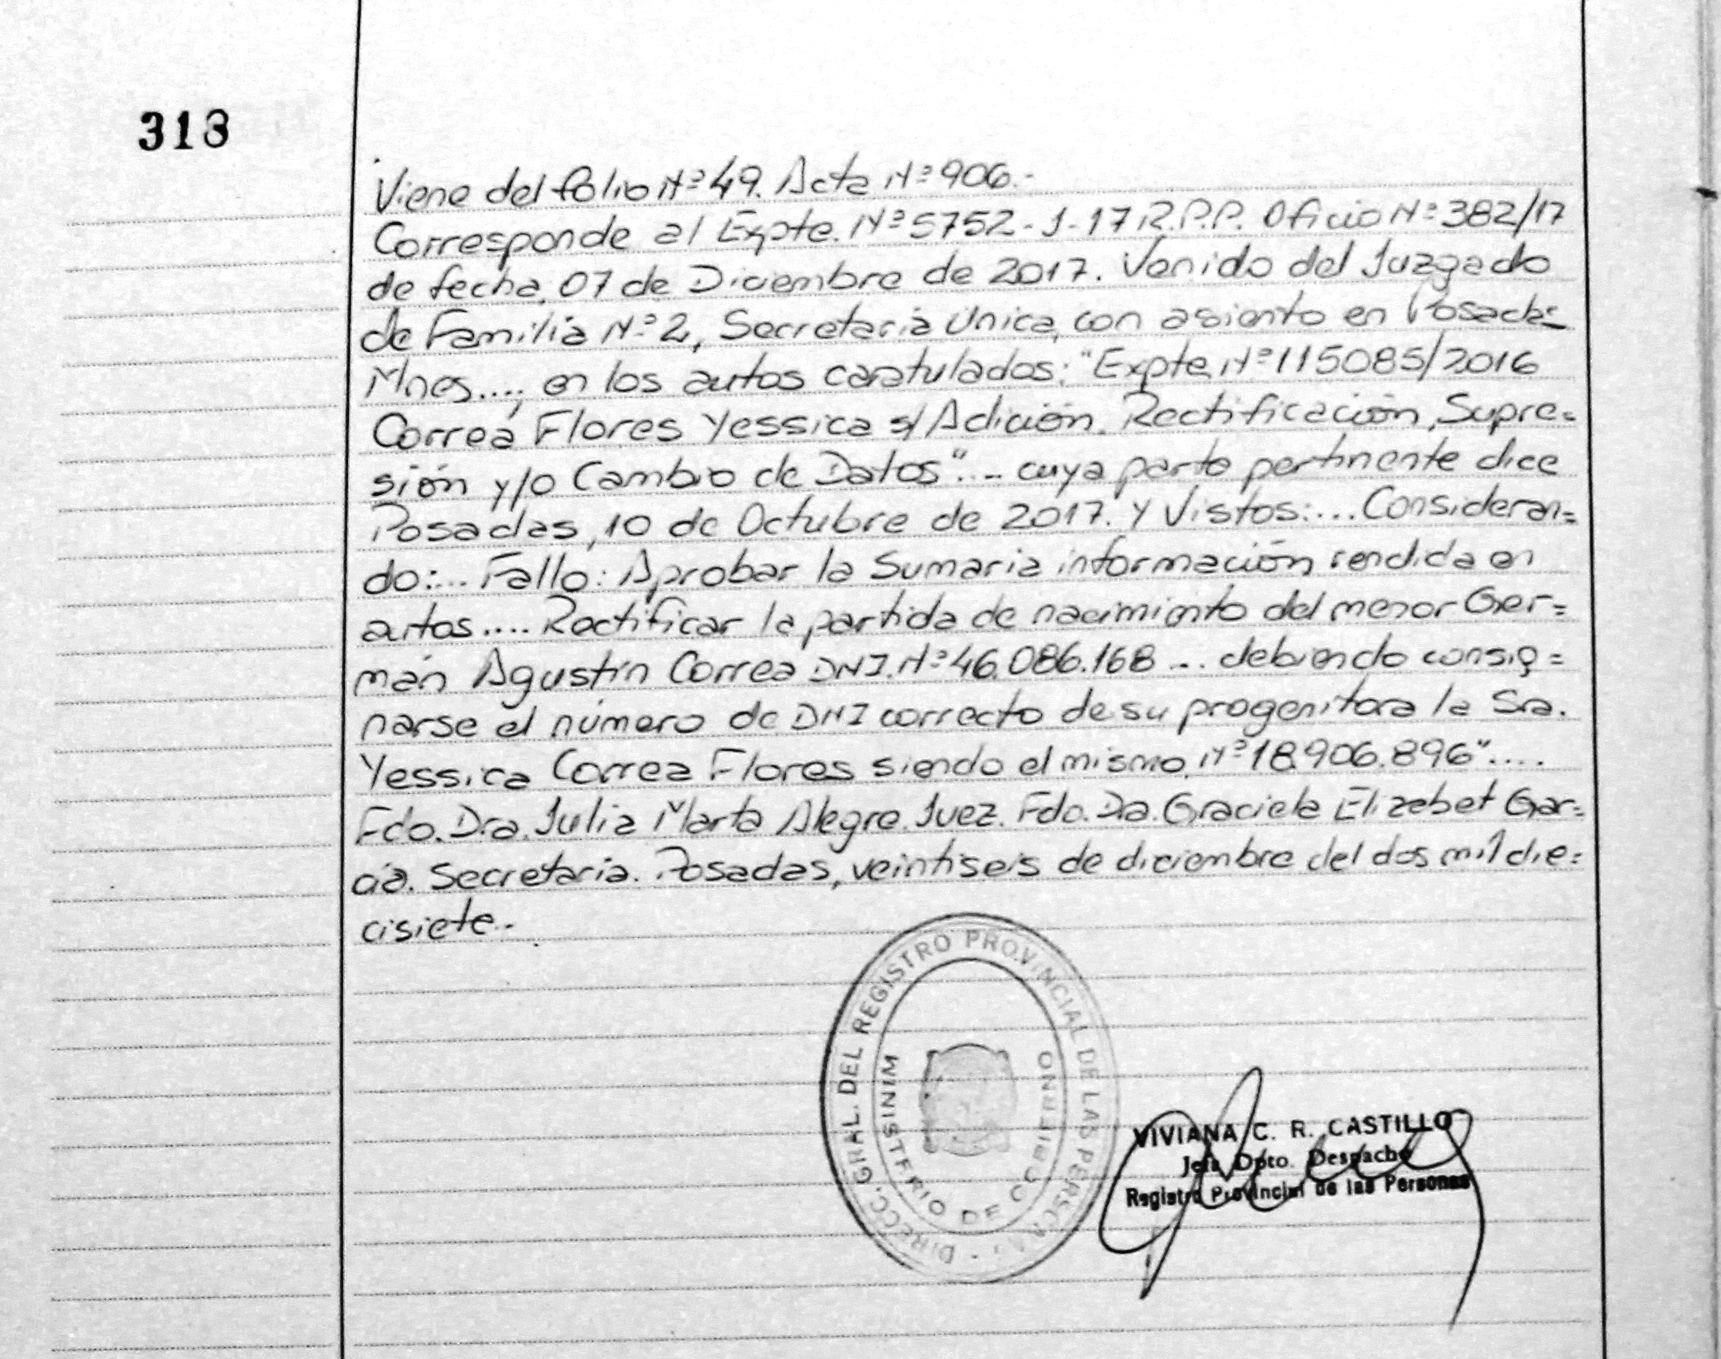 318
Viene del folio Nº 49. Acta Nº 906.-
Corresponde al Expte. Nº 5752-J-17 R.P.P. Oficio Nº 382/17
de fecha, 07 de Diciembre de 2017. Venido del Juzgado
de Familia Nº 2, Secretaría Unica, con asiento en Posadas=
Mnes...., en los autos caratulados: "Expte. Nº 115085/2016
Correa Flores Yessica s/ Adición, Rectificación, Supre=
sión y/o Cambio de Datos".-- cuya parte pertinente dice
Posadas, 10 de Octubre de 2017. Y Vistos:... Consideran=
do:... Fallo: Aprobar la Sumaria información rendida en
autos.... Rectificar la partida de nacimiento del menor Ger=
mán Agustín Correa DNI. Nº 46.086.168 ... debiendo consig=
narse el número de DNI correcto de su progenitora la Sra.
Yessica Correa Flores siendo el mismo, Nº 18.906.896"....
Fdo. Dra. Julia Marta Alegre. Juez. Fdo. Dra. Graciela Elizebet Gar=
cía. Secretaria. Posadas, veintiseis de diciembre del dos mil die=
cisiete.-
DIRECC. GRAL. DEL REGISTRO PROVINCIAL DE LAS PERSONAS
MINISTERIO DE GOBIERNO
VIVIANA C. R. CASTILLO
Jefa Dpto. Despacho
Registro Provincial de las Personas